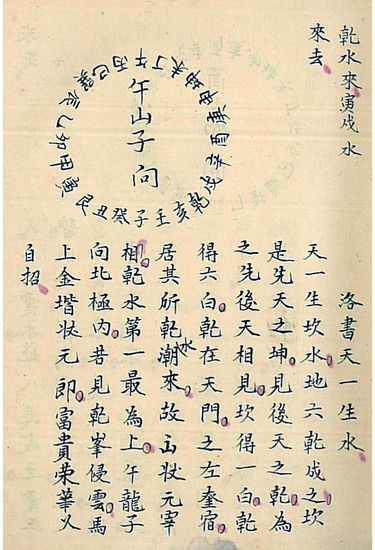 乾水來寅戌水
來去
午山子向
午丁未坤申庚酉辛戌乾亥壬子癸丑艮寅甲卯乙辰巽巳丙
洛書天一生水
天一生坎水地六乾成之坎
是先天之坤見後天之乾為
之先後天相見坎得一白乾
得六白乾在天門之左奎宿
居其所乾潮水來故出狀元宰
相乾水第一最為上午龍子
向北極內若見乾峯侵雲馬
上金堦狀元即富貴荣華
自招